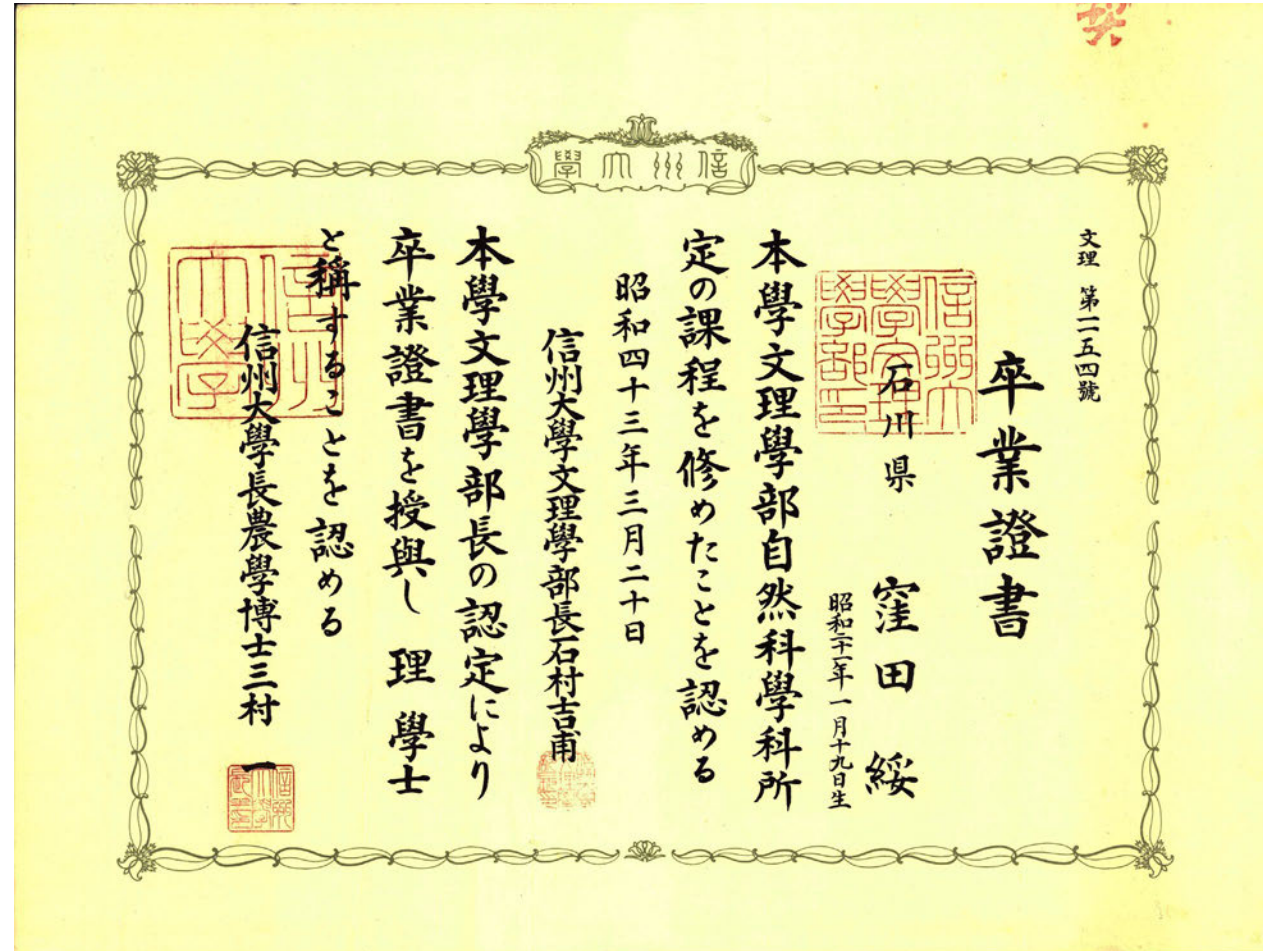 信州大學
文理 第一一五四號
卒業證書
石川県 窪田 綏
昭和二十二年一月十九日生
本學文理學部自然科學科所
定の課程を修めたことを認める
昭和四十三年三月二十日
信州大學文理學部長石村吉甫
本學文理學部長の認定により
卒業證書を授與し 理學士
と稱することを認める
信州大學長農學博士三村 一
信州大學文理學部印
信州大學